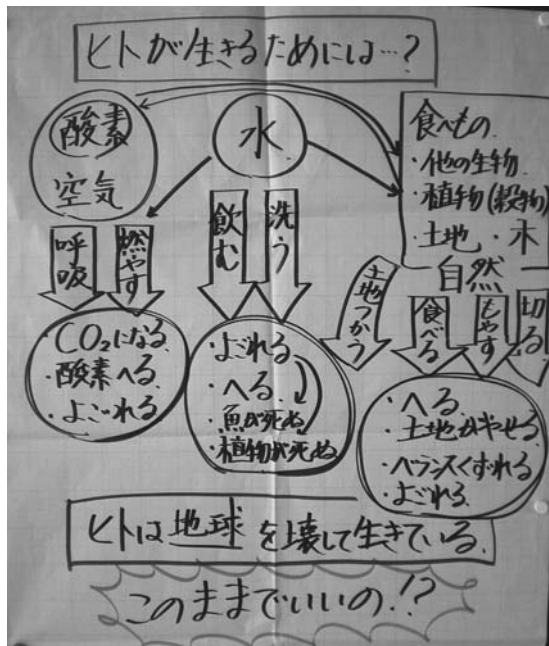 ヒトが生きるためには…?
酸素
空気
水
食べもの
・他の生物
・植物(穀物)
・土地・木
自然
呼吸
燃やす
飲む
洗う
土地つかう
食べる
もやす
切る
CO₂になる
・酸素へる
・よごれる
・よごれる
・へる
・魚が死ぬ
・植物が死ぬ
・へる
・土地がやせる
・バランスくずれる
・よごれる
ヒトは地球を壊して生きている。
このままでいいの!?